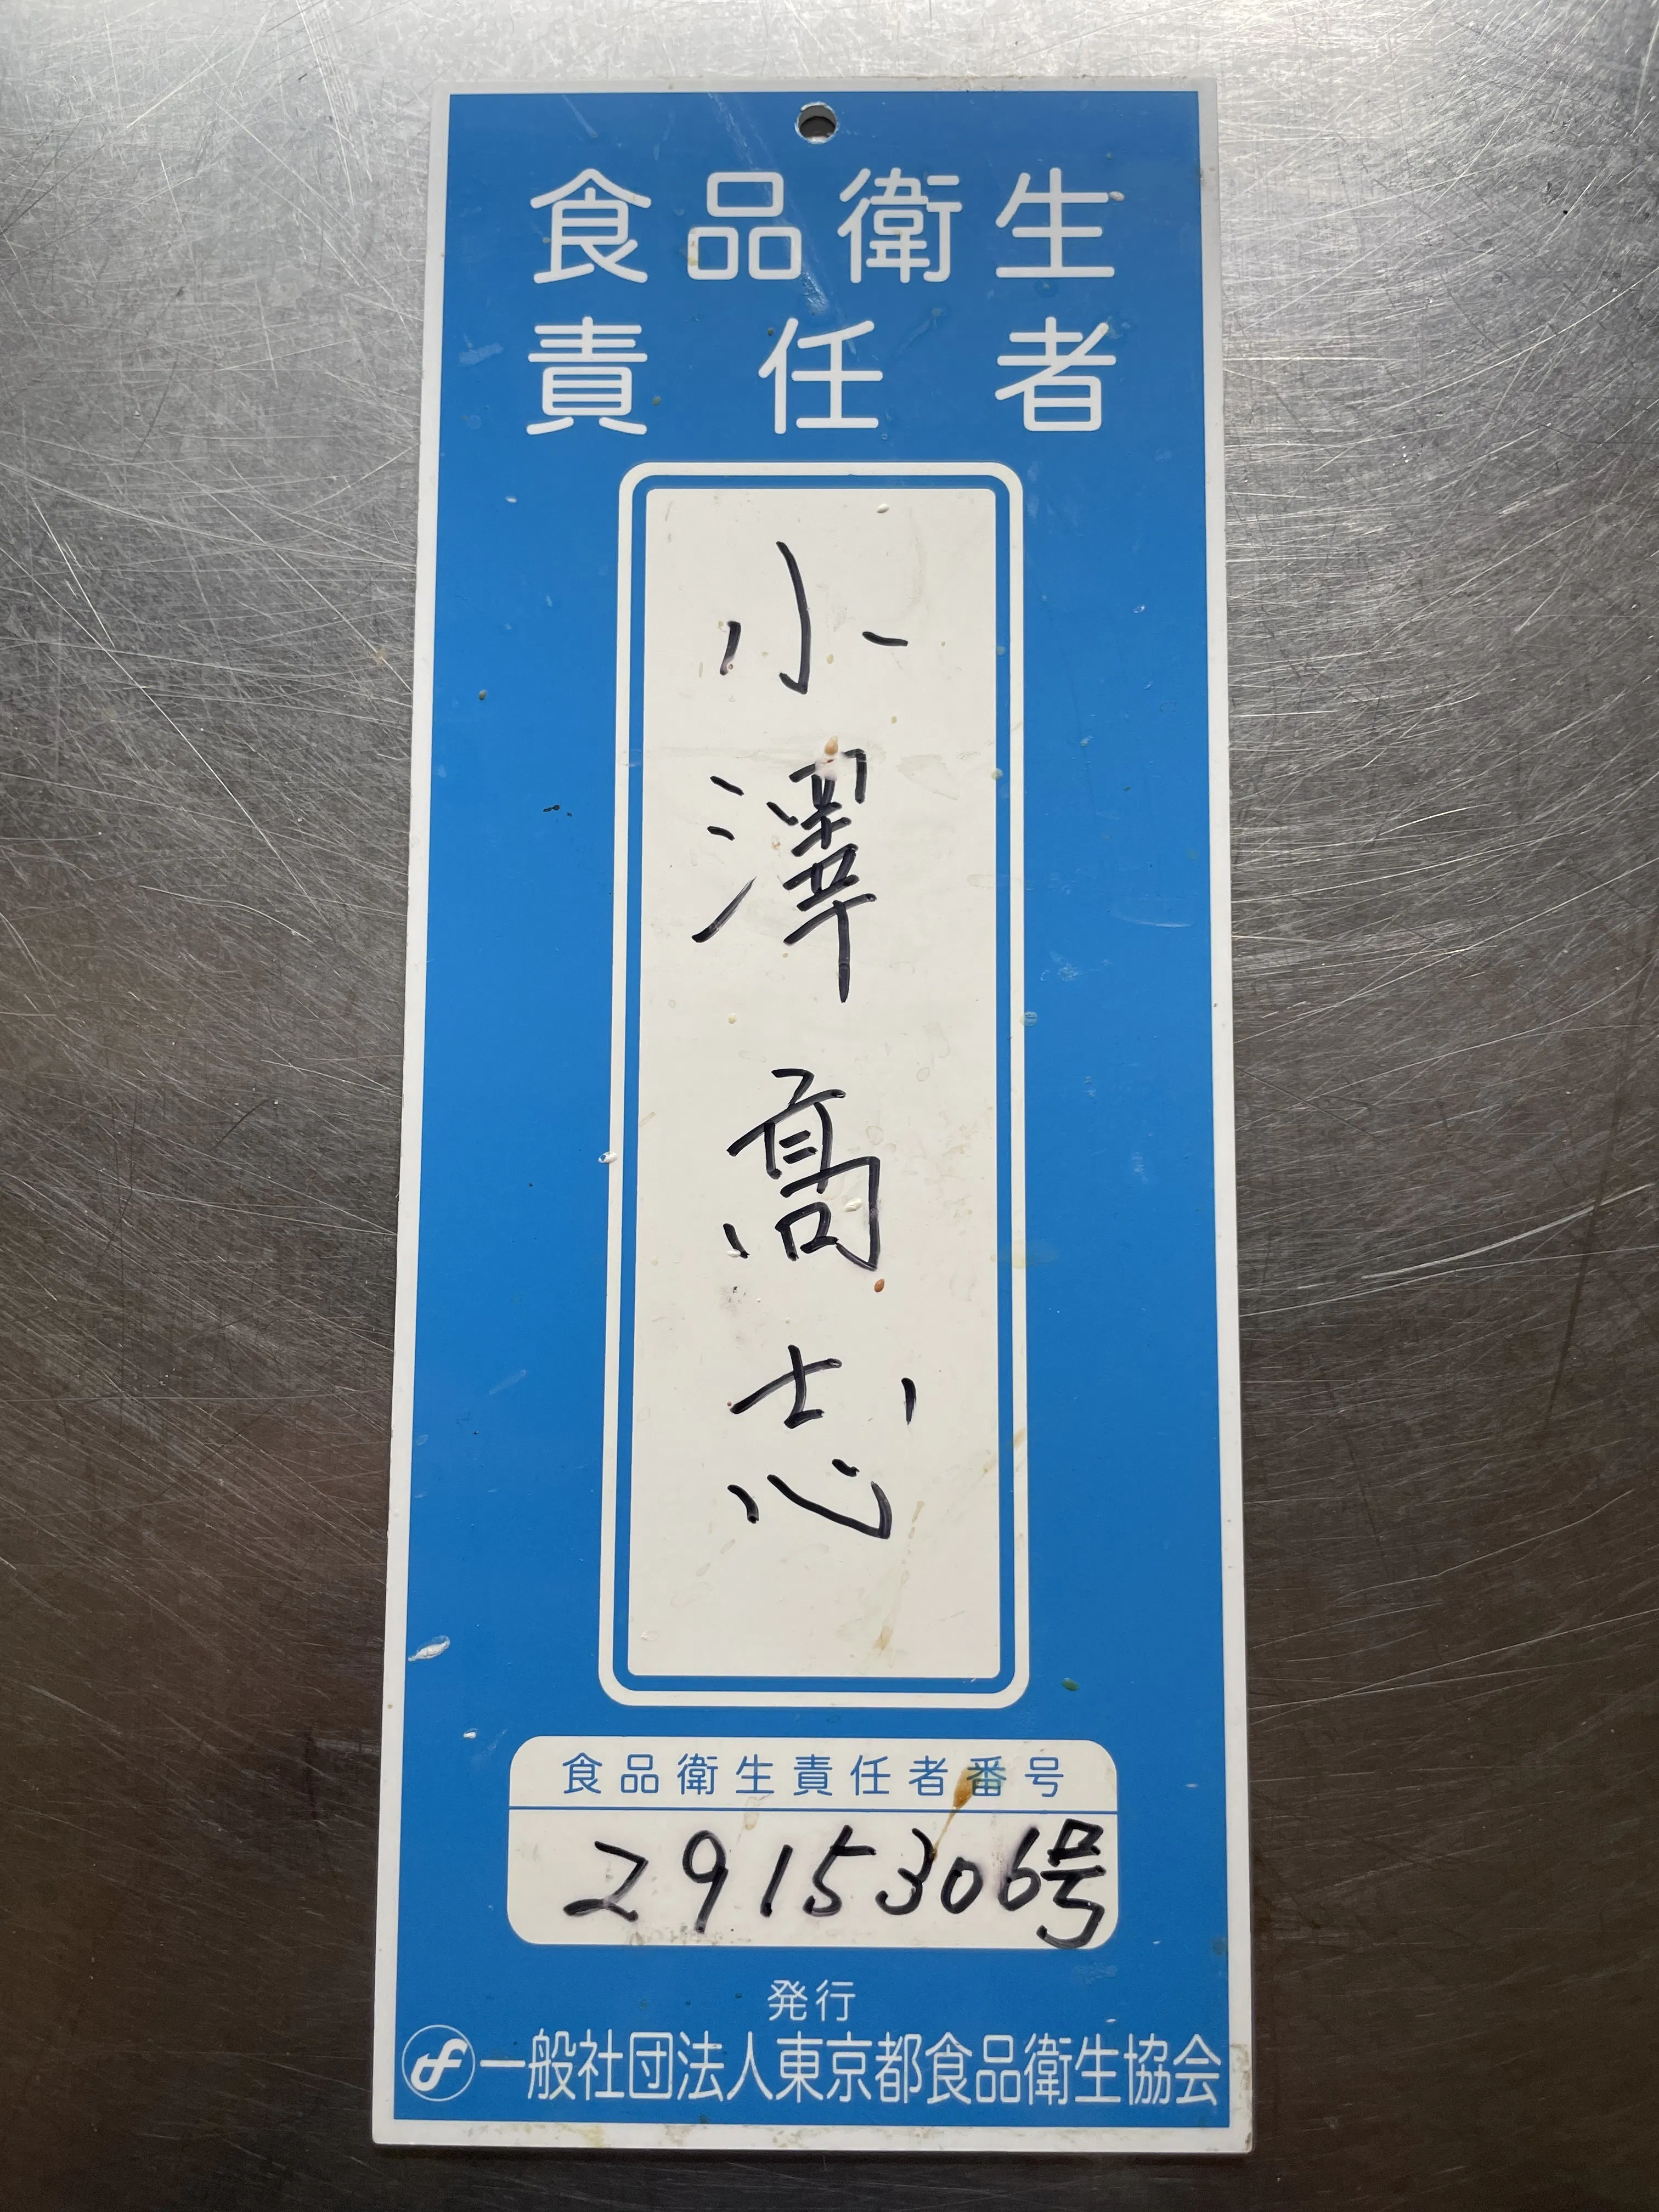 食品衛生
責任者
小澤髙志
食品衛生責任者番号
2915306号
発行
一般社団法人東京都食品衛生協会